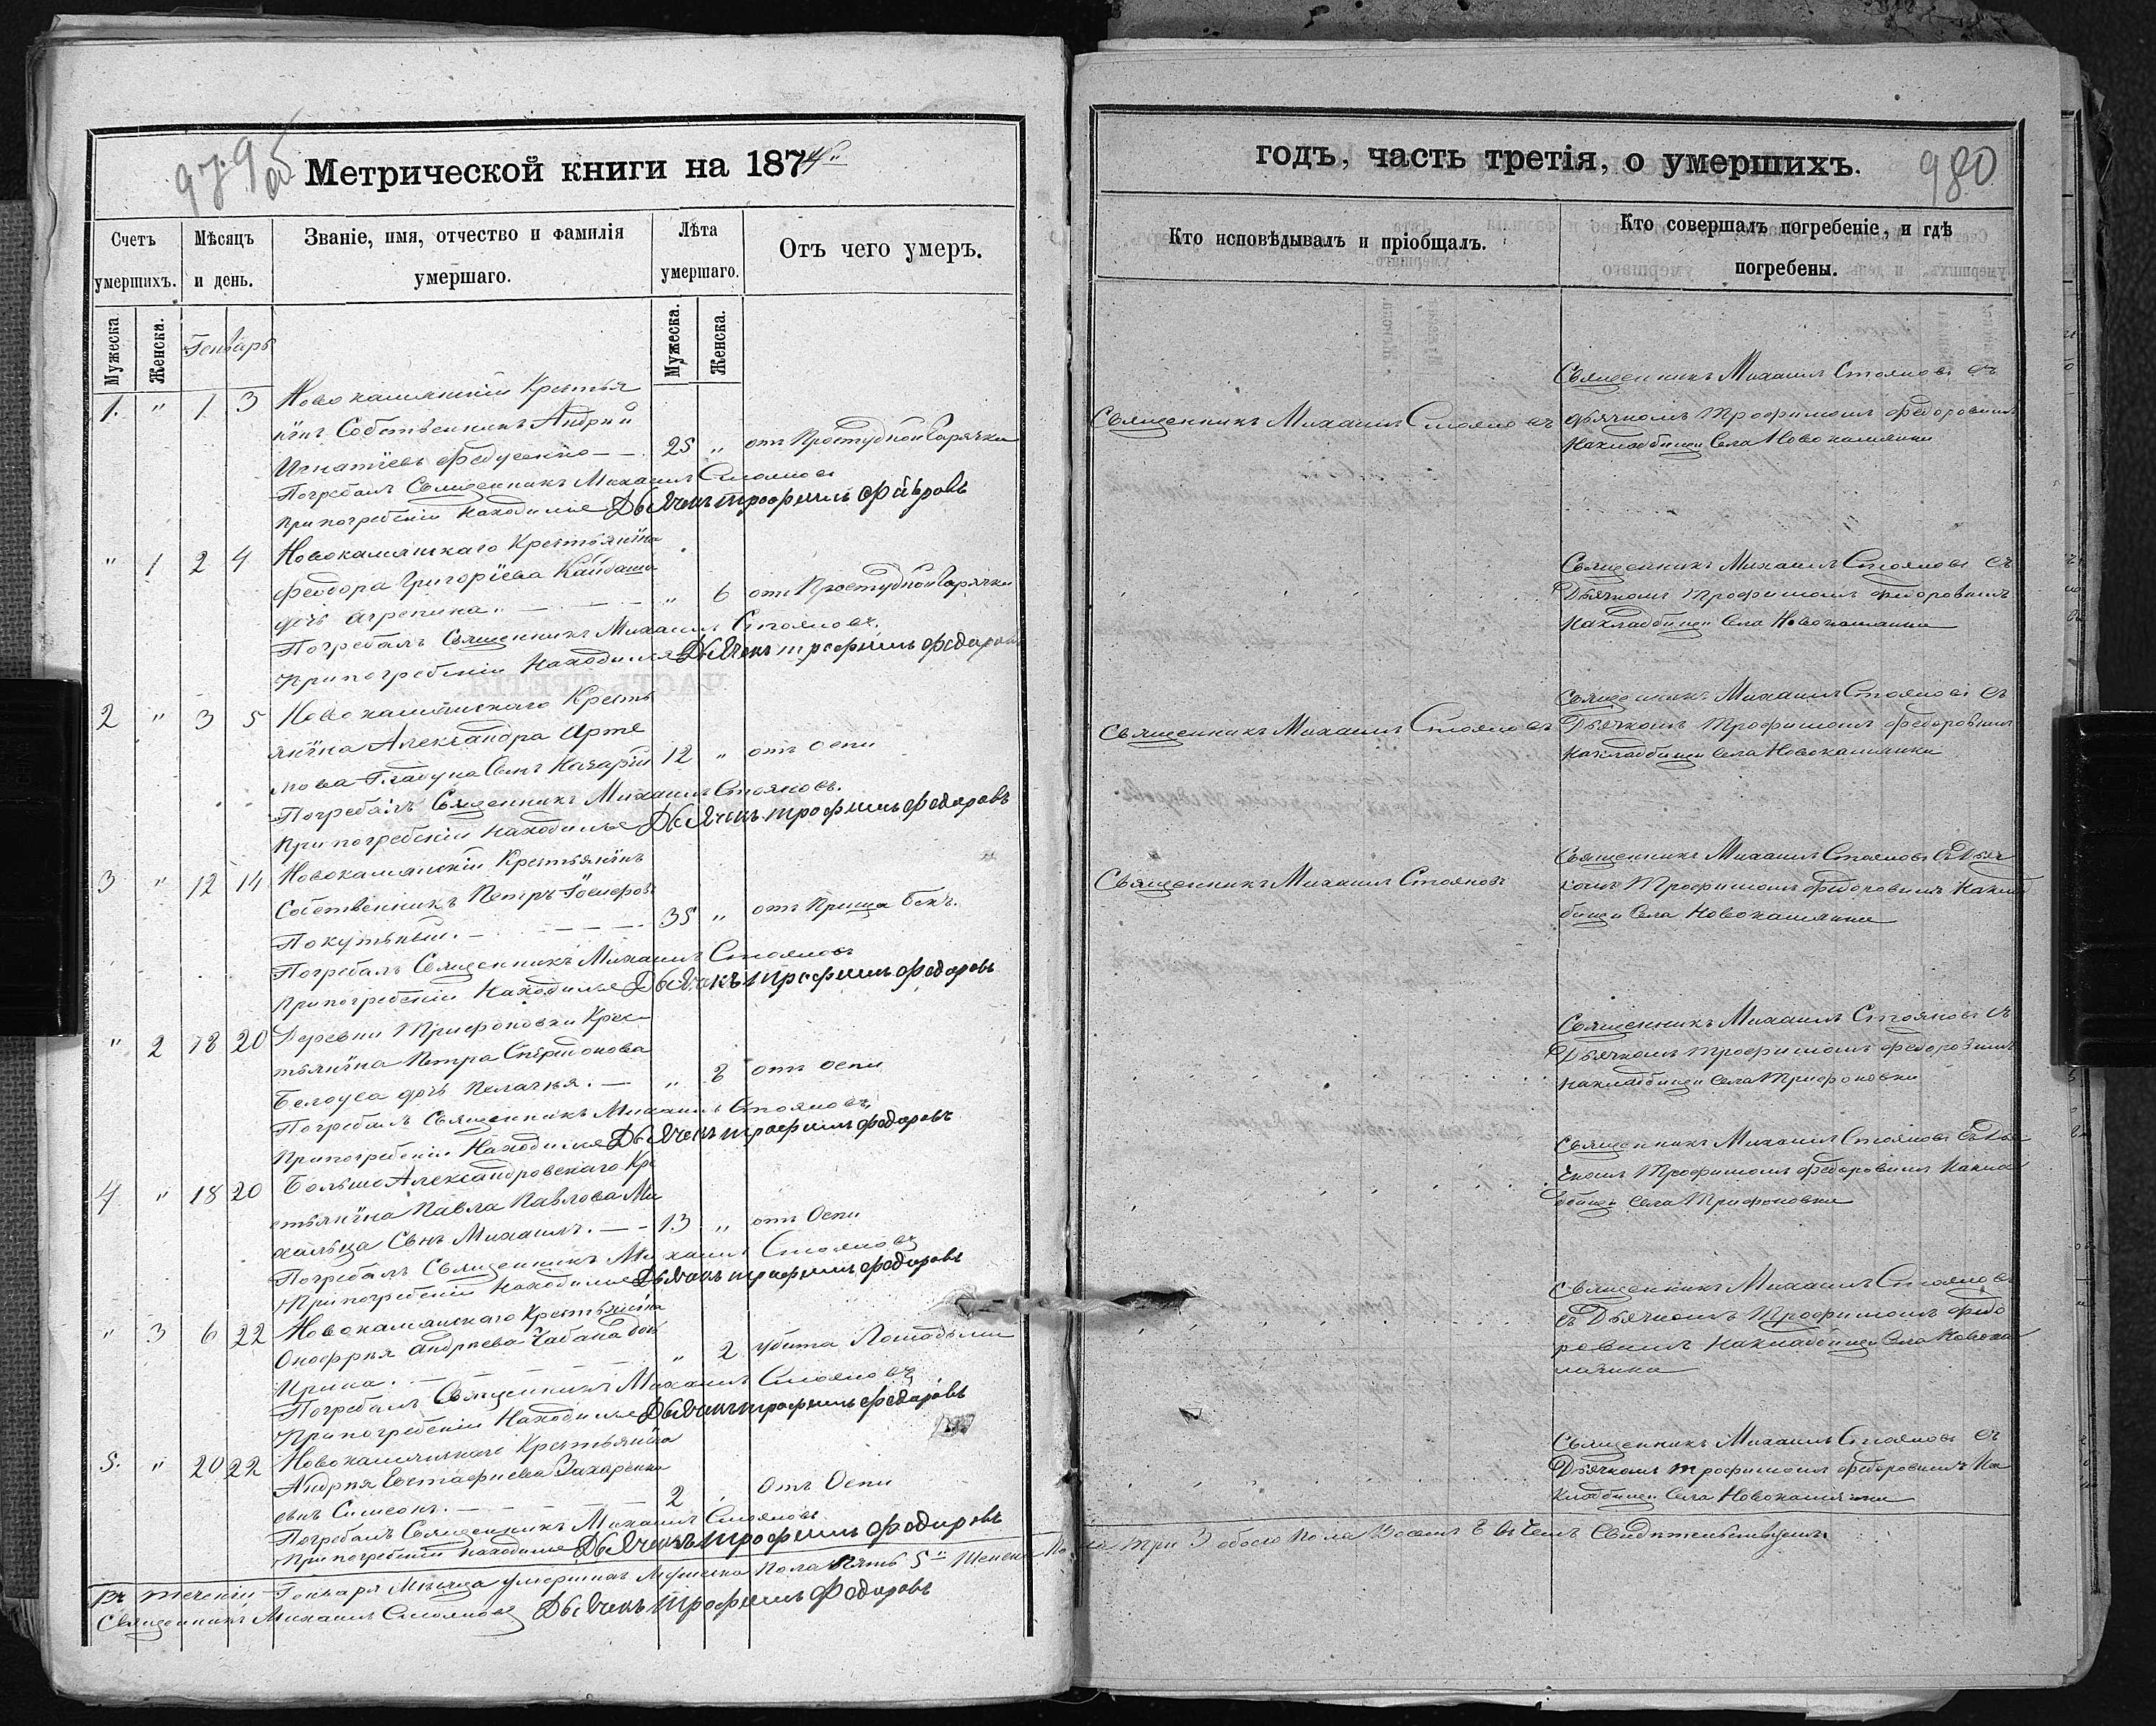 979 об
Метрической книги на 1874ый
Счетъ умершихъ.
Мѣсяцъ и день.
Званіе, имя, отчество и фамилія умершаго.
Лѣта умершаго.
Отъ чего умеръ.
Мужеска
Женска.
Генварь
Мужеска.
Женска.
1. " 1 3 Новокамянскій Крестья
нинъ Собственникъ Андрѣй
Игнатіевъ Федусенко — 25 " отъ Простудной Горячки
Погребалъ Священникъ Михаилъ Стояновъ
При погребеніи Находился Дьячекъ Трофимъ Федоровъ
" 1 2 4 Новокамянскаго Крестьянина
Феодора Григоріева Кайдаша
дочь Агрепина. — " 6 отъ Простудной Горячки
Погребалъ Священникъ Михаилъ Стояновъ.
При погребеніи Находился Дьячекъ Трофимъ Федоровъ
2 " 3 5 Новокамянскаго Кресть
янина Александра Арте
мова Гладуна Сынъ Назарій 12 " отъ Оспи
Погребалъ Священникъ Михаилъ Стояновъ.
При погребеніи Находился Дьячекъ Трофимъ Федоровъ
3 " 12 14 Новокамянскій Крестьянинъ
Собственникъ Петръ Іосифовъ
Покутьный. — 35 " отъ Прища
Погребалъ Священникъ Михаилъ Стояновъ
При погребеніи Находился Дьячекъ Трофимъ Федоровъ
" 2 18 20 Деревни Трифоновки Крес
тьянина Петра Спиридонова
Белоуса дочь Пелагія. — " отъ Оспи
Погребалъ Священникъ Михаилъ Стояновъ,
При погребеніи Находился Дьячекъ Трофимъ Федоровъ
4 " 18 20 Больше Александровскаго Кре
стьянина Павла Павлова Ми
хальца Сынъ Михаилъ. — 13 " отъ Оспи
Погребалъ Священникъ Михаилъ Стояновъ
При погребеніи Находился Дьячекъ Трофимъ Федоровъ
" 3 6 22 Новокамянскаго Крестьянина
Онофрія Андріева Чабана дочь
Ирина. — " 2 убита Лошадьми
Погребалъ Священникъ Михаилъ Стояновъ
При погребеніи Находился Дьячекъ Трофимъ Федоровъ
5. " 20 22 Новокамянскаго Крестьянина
Андрія Евстафиева Захарченка
сынъ Симеонъ. — 2 отъ Оспи
Погребалъ Священникъ Михаилъ Стояновъ
При погребеніи Находился Дьячекъ Трофимъ Федоровъ
Въ теченіи Генваря Мѣсяца умершихъ Мужеска Пола Пять 5" Женска Пола Три 3 обоего Пола Восемъ 8 въ чемъ Свидѣтельствуемъ
Священникъ Михаилъ Стояновъ Дьячекъ Трофимъ Федоровъ
годъ, часть третія, о умершихъ.
980
Кто исповѣдывалъ и пріобщалъ.
Кто совершалъ погребеніе, и гдѣ погребены.
Священникъ Михаилъ Стояновъ
Священникъ Михаилъ Стояновъ съ
дьячкомъ Трофимомъ Федоровимъ
На кладбищи Села Новокамянки
Священникъ Михаилъ Стояновъ съ
Дьячкомъ Трофимомъ Федоровимъ
На кладбищи Села Новокамянки
Священникъ Михаилъ Стояновъ
Священникъ Михаилъ Стояновъ съ
Дьячкомъ Трофимомъ Федоровимъ
На кладбищи Села Новокамянки
Священникъ Михаилъ Стояновъ
Священникъ Михаилъ Стояновъ съ Дьяч
комъ Трофимомъ Федоровимъ На клад
бищи Села Новокамянки
Священникъ Михаилъ Стояновъ съ
Дьячкомъ Трофимомъ Федоровимъ
на кладбищи Села Трифоновки
Священникъ Михаилъ Стояновъ съ Дья
чкомъ Трофимомъ Федоровимъ На кла
дбищи Села Трифоновки
Священникъ Михаилъ Стояновъ
съ Дьячкомъ Трофимомъ Федо
ровимъ На кладбищи Села Новока
мянки
Священникъ Михаилъ Стояновъ съ
Дьячкомъ Трофимомъ Федоровимъ На
кладбищи Села Новокамянки